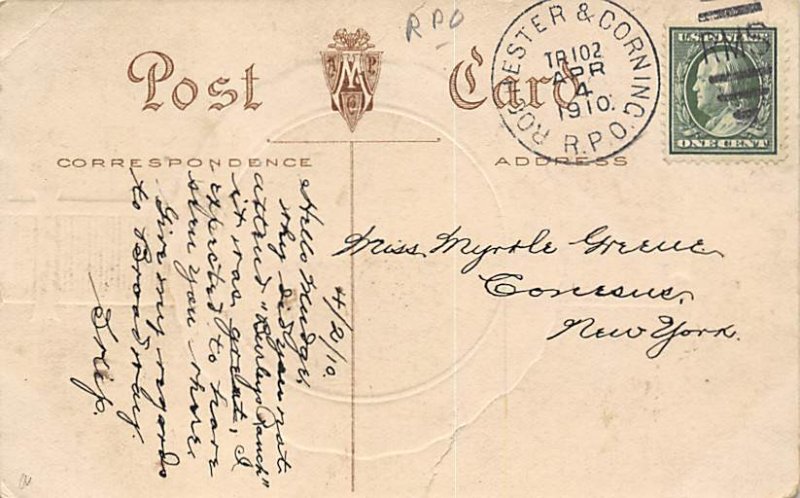 RPO
Post Card
ROCHESTER & CORNING R.P.O.
TR102
APR
4
1910.
RMS
U.S. POSTAGE
ONE CENT
CORRESPONDENCE
ADDRESS
4/2/10.
Hello Mudge,
Why did you not
attend "Burleys Ranch"
it was great, I
expected to have
seen you there
Give my regards
to Broadway.
Miss Myrtle Greene
Conesus,
New York.